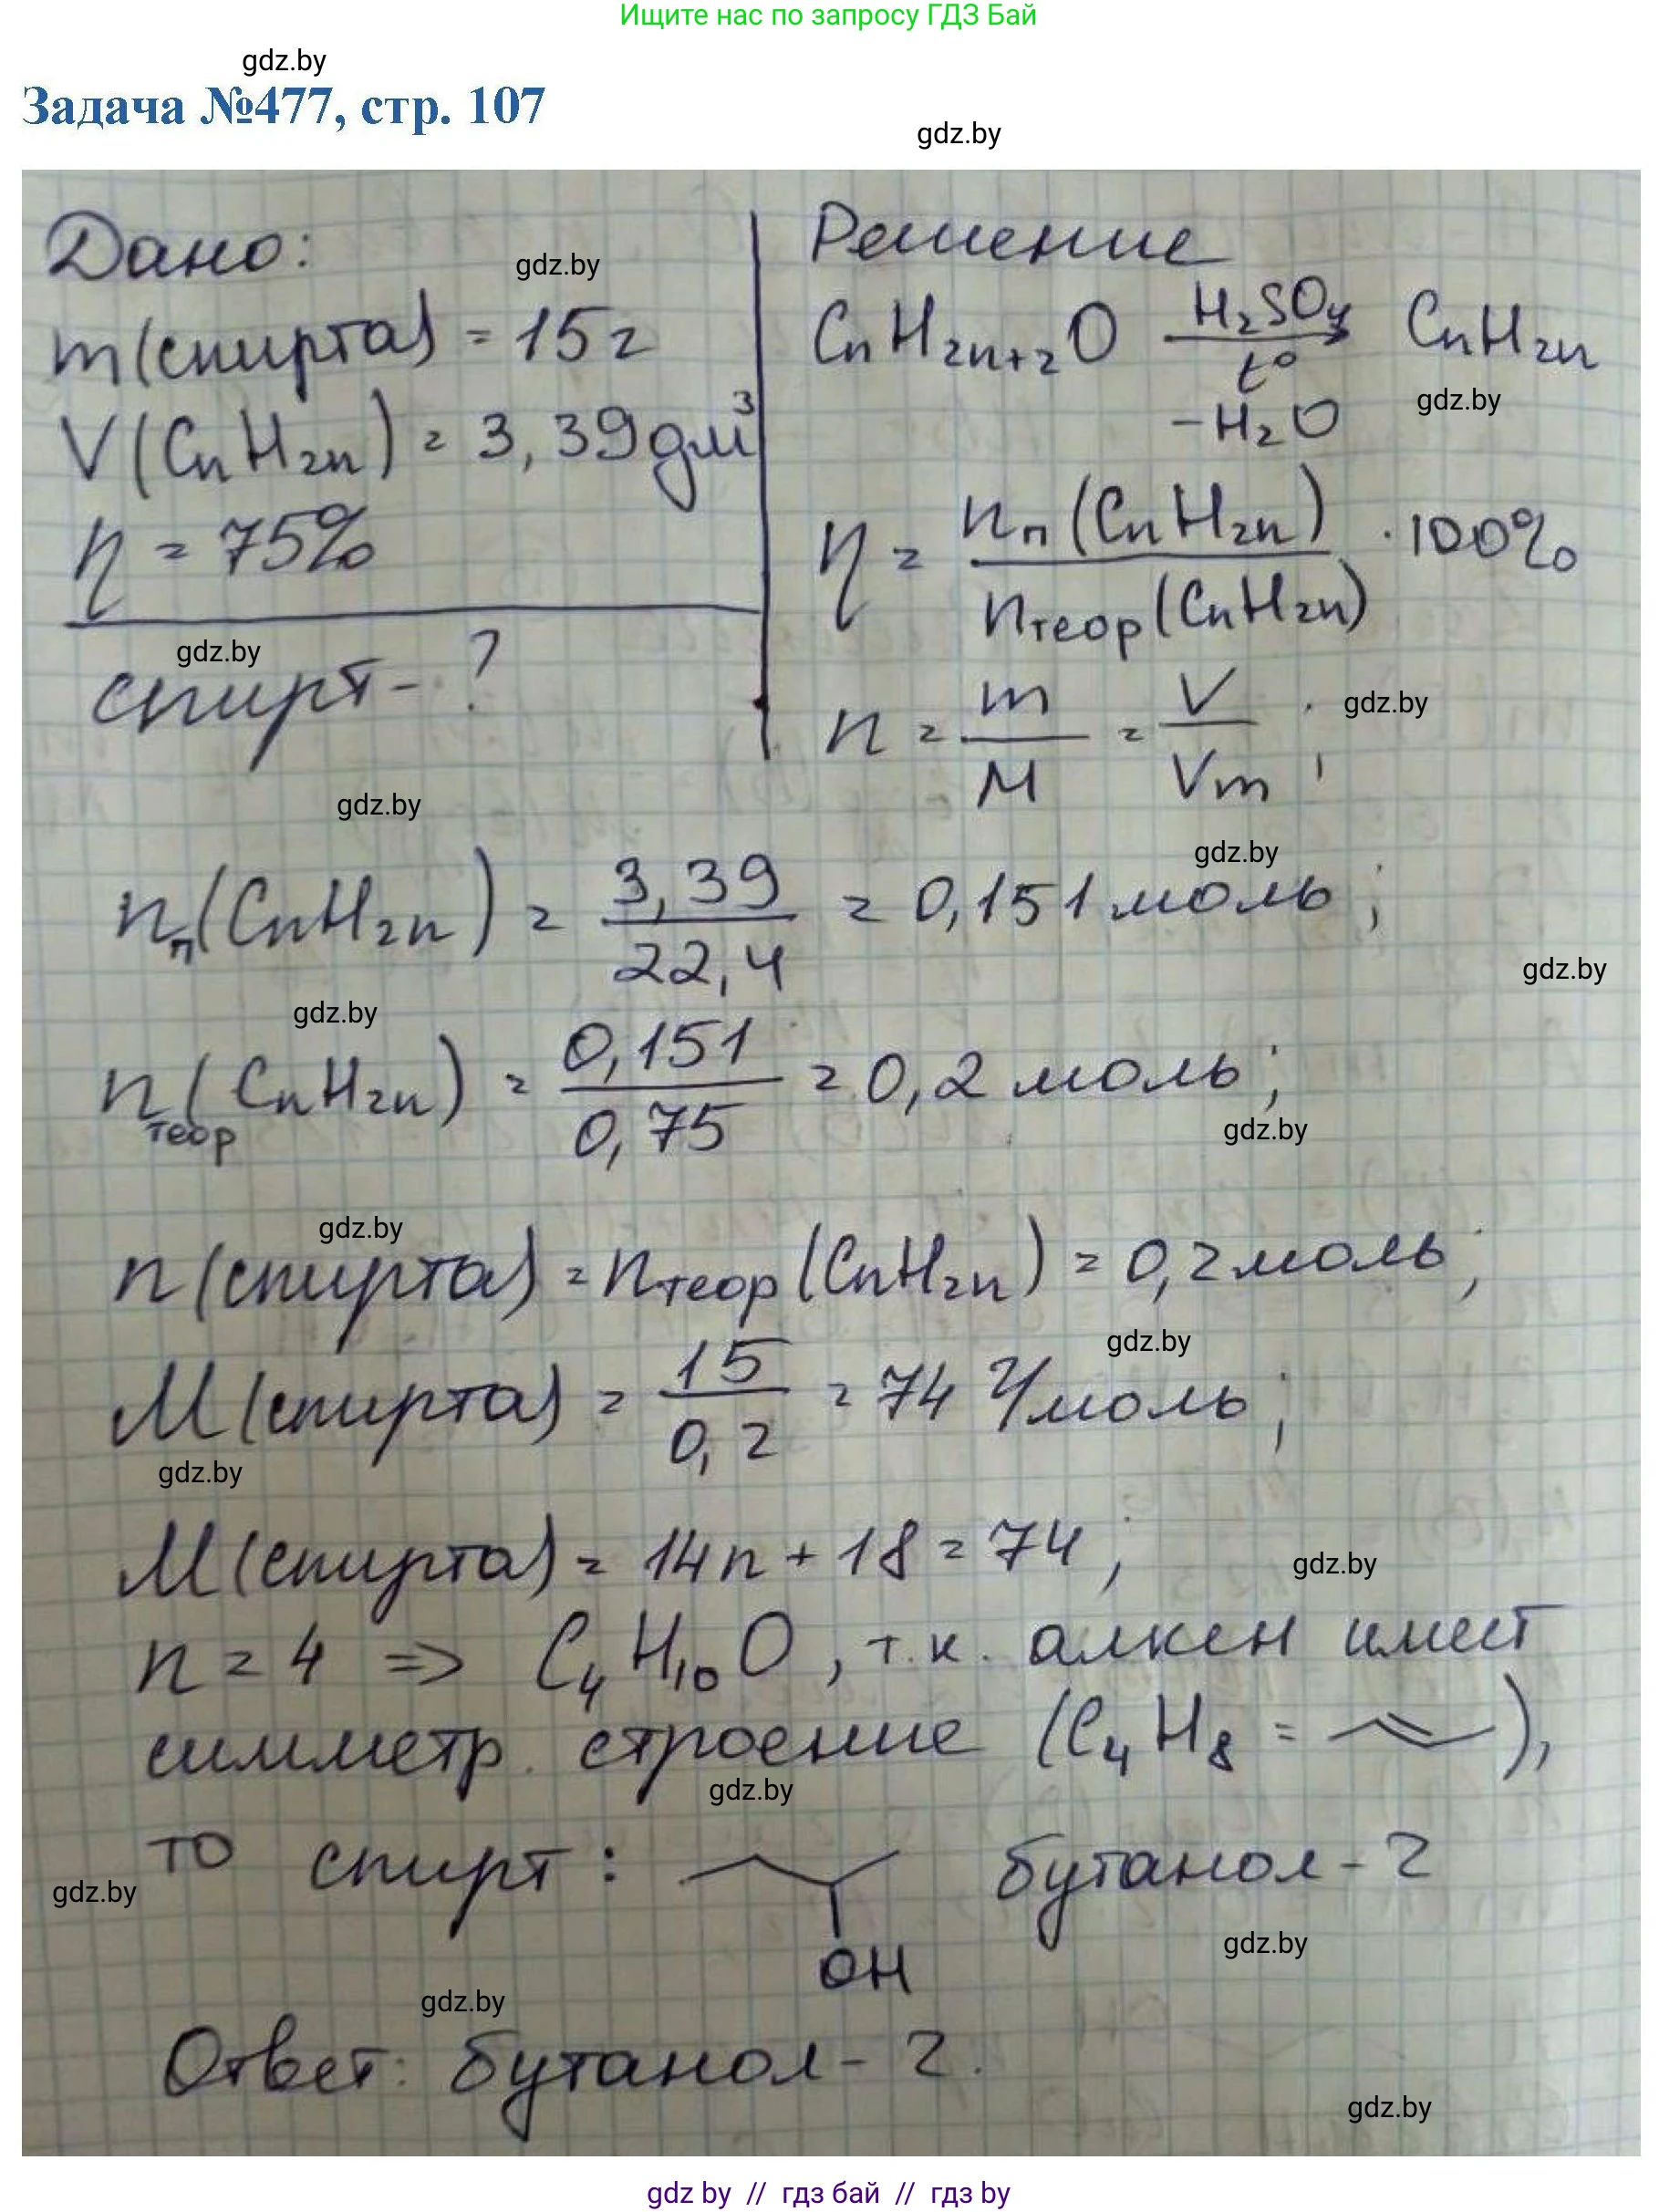 Ищите нас по запросу ГДЗ Бай
gdz.by
Задача №477, стр. 107
gdz.by
Дано:
gdz.by
m(спирта) = 15г
V(CnH2n) = 3,39дм³
η = 75%
gdz.by
спирт - ?
gdz.by
Решение
CnH2n+2O H2SO4 CnH2n
t°
-H2O
gdz.by
η = nп(CnH2n) / nтеор(CnH2n) · 100%
n = m/M = V/Vm ;
gdz.by
gdz.by
nп(CnH2n) = 3,39/22,4 = 0,151 моль ;
gdz.by
gdz.by
nтеор(CnH2n) = 0,151/0,75 = 0,2 моль ;
gdz.by
gdz.by
n(спирта) = nтеор(CnH2n) = 0,2 моль ;
gdz.by
M(спирта) = 15/0,2 = 74 г/моль ;
gdz.by
M(спирта) = 14n + 18 = 74 ;
gdz.by
n = 4 => C4H10O , т.к. алкен имеет
симметр. строение (C4H8 = ),
gdz.by
то спирт : бутанол - 2
gdz.by
OH
gdz.by
gdz.by
Ответ: бутанол - 2.
gdz.by
gdz by // гдз бай // гдз by